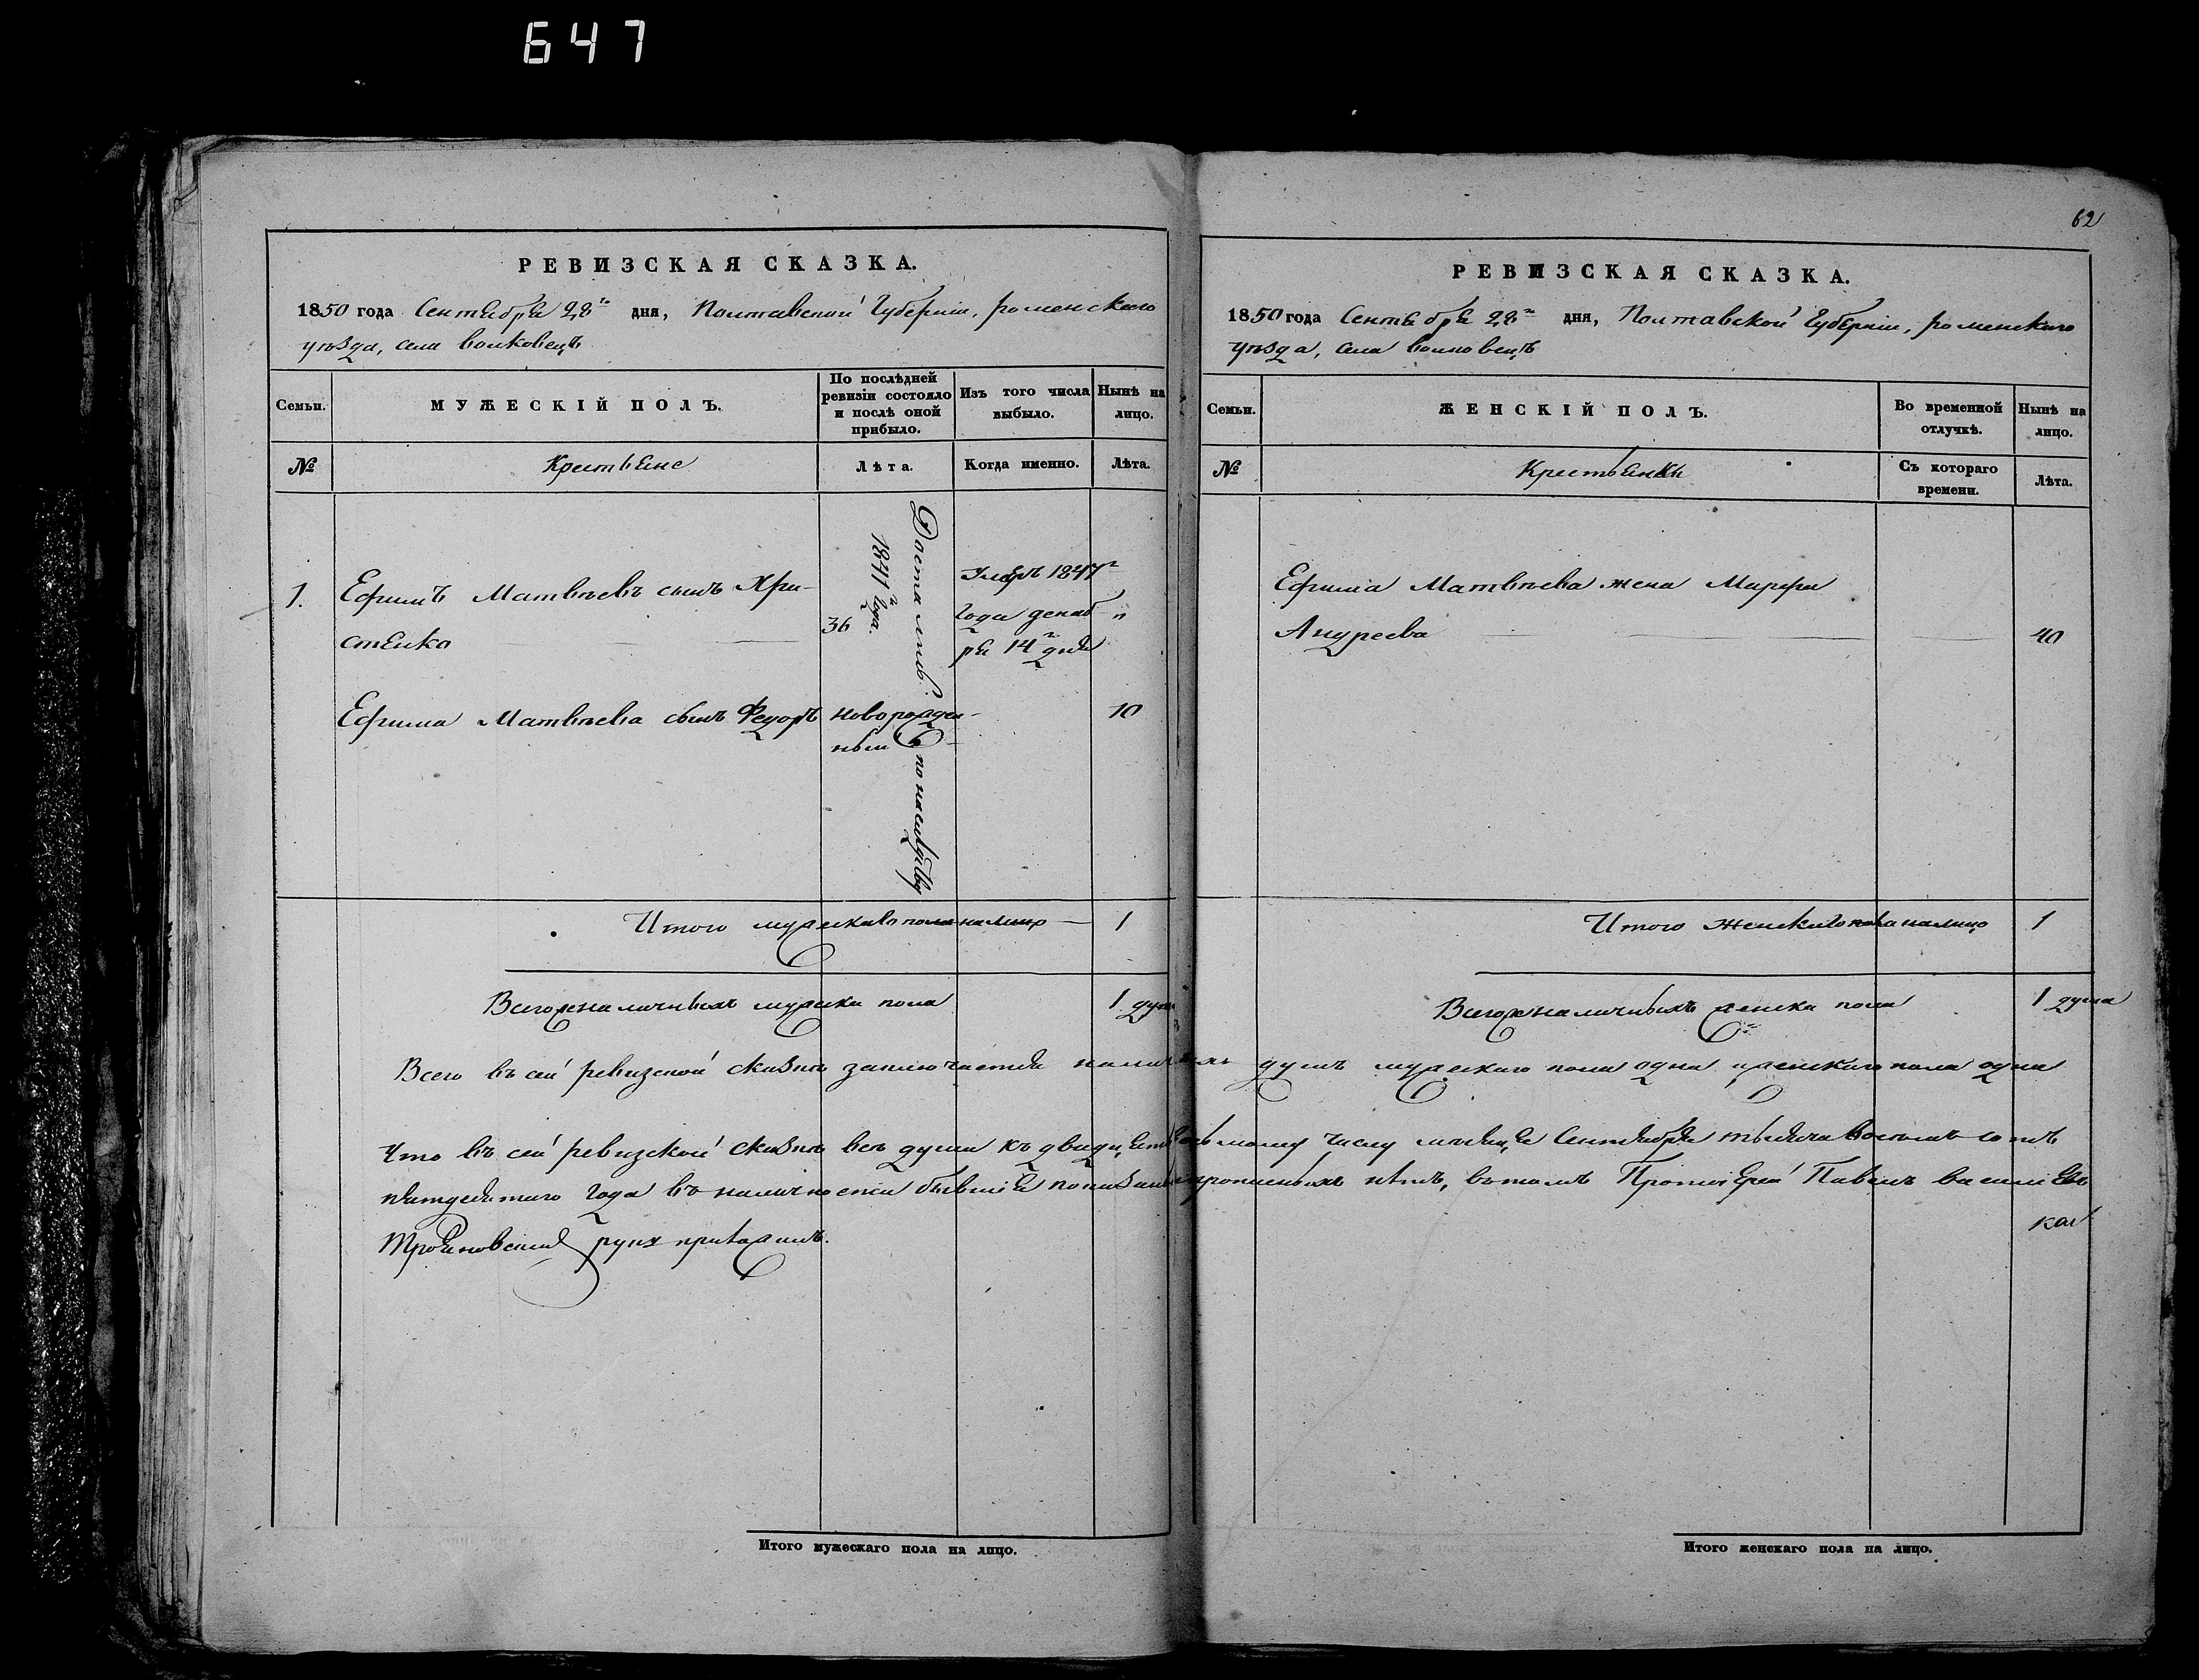 647
62
РЕВИЗСКАЯ СКАЗКА.
1850 года Сентября 28го дня, Полтавской Губерніи, роменского
уѣзда, села волковецъ
Семьи.
МУЖЕСКІЙ ПОЛЪ.
По послѣдней
ревизіи состояло
и послѣ оной
прибыло.
Изъ того числа
выбыло.
Нынѣ на
лицо.
№
Крестьяне
Лѣта.
Когда именно.
Лѣта.
1.
Ефимъ Матвѣевъ сынъ Хри-
стенко
36
Достался
по наслѣдству
1841го года.
Умеръ 1847го
года декаб
ря 14го дня
"
Ефима Матвѣева сынъ Федоръ
новорожден-
ный
10
Итого мужескаго пола на лицо
1
Всего же наличныхъ мужеска пола
1 душа
РЕВИЗСКАЯ СКАЗКА.
1850 года Сентября 28го дня, Полтавской Губерніи, роменскаго
уѣзда, села волковецъ
Семьи.
ЖЕНСКІЙ ПОЛЪ.
Во временной
отлучкѣ.
Нынѣ на
лицо.
№
Крестьянки
Съ котораго
времени.
Лѣта.
Ефима Матвѣева жена Марфа
Андреева
40
Итого женскаго пола на лицо
1
Всего же наличныхъ женска пола
1 душа
Всего въ сей ревизской сказкѣ заключается наличныхъ душъ мужескаго пола одна и женскаго пола одна
Что въ сей ревизской сказкѣ всѣ души къ двадцать осьмому числу мѣсяца Сентября тысяча восемь сотъ
пятдесятаго года въ наличности бывшія показаны и прописныхъ нѣтъ, въ томъ Протоіерей Павелъ василіевъ
Трояновскій руку приложилъ.
Итого мужескаго пола на лицо.
Итого женскаго пола на лицо.